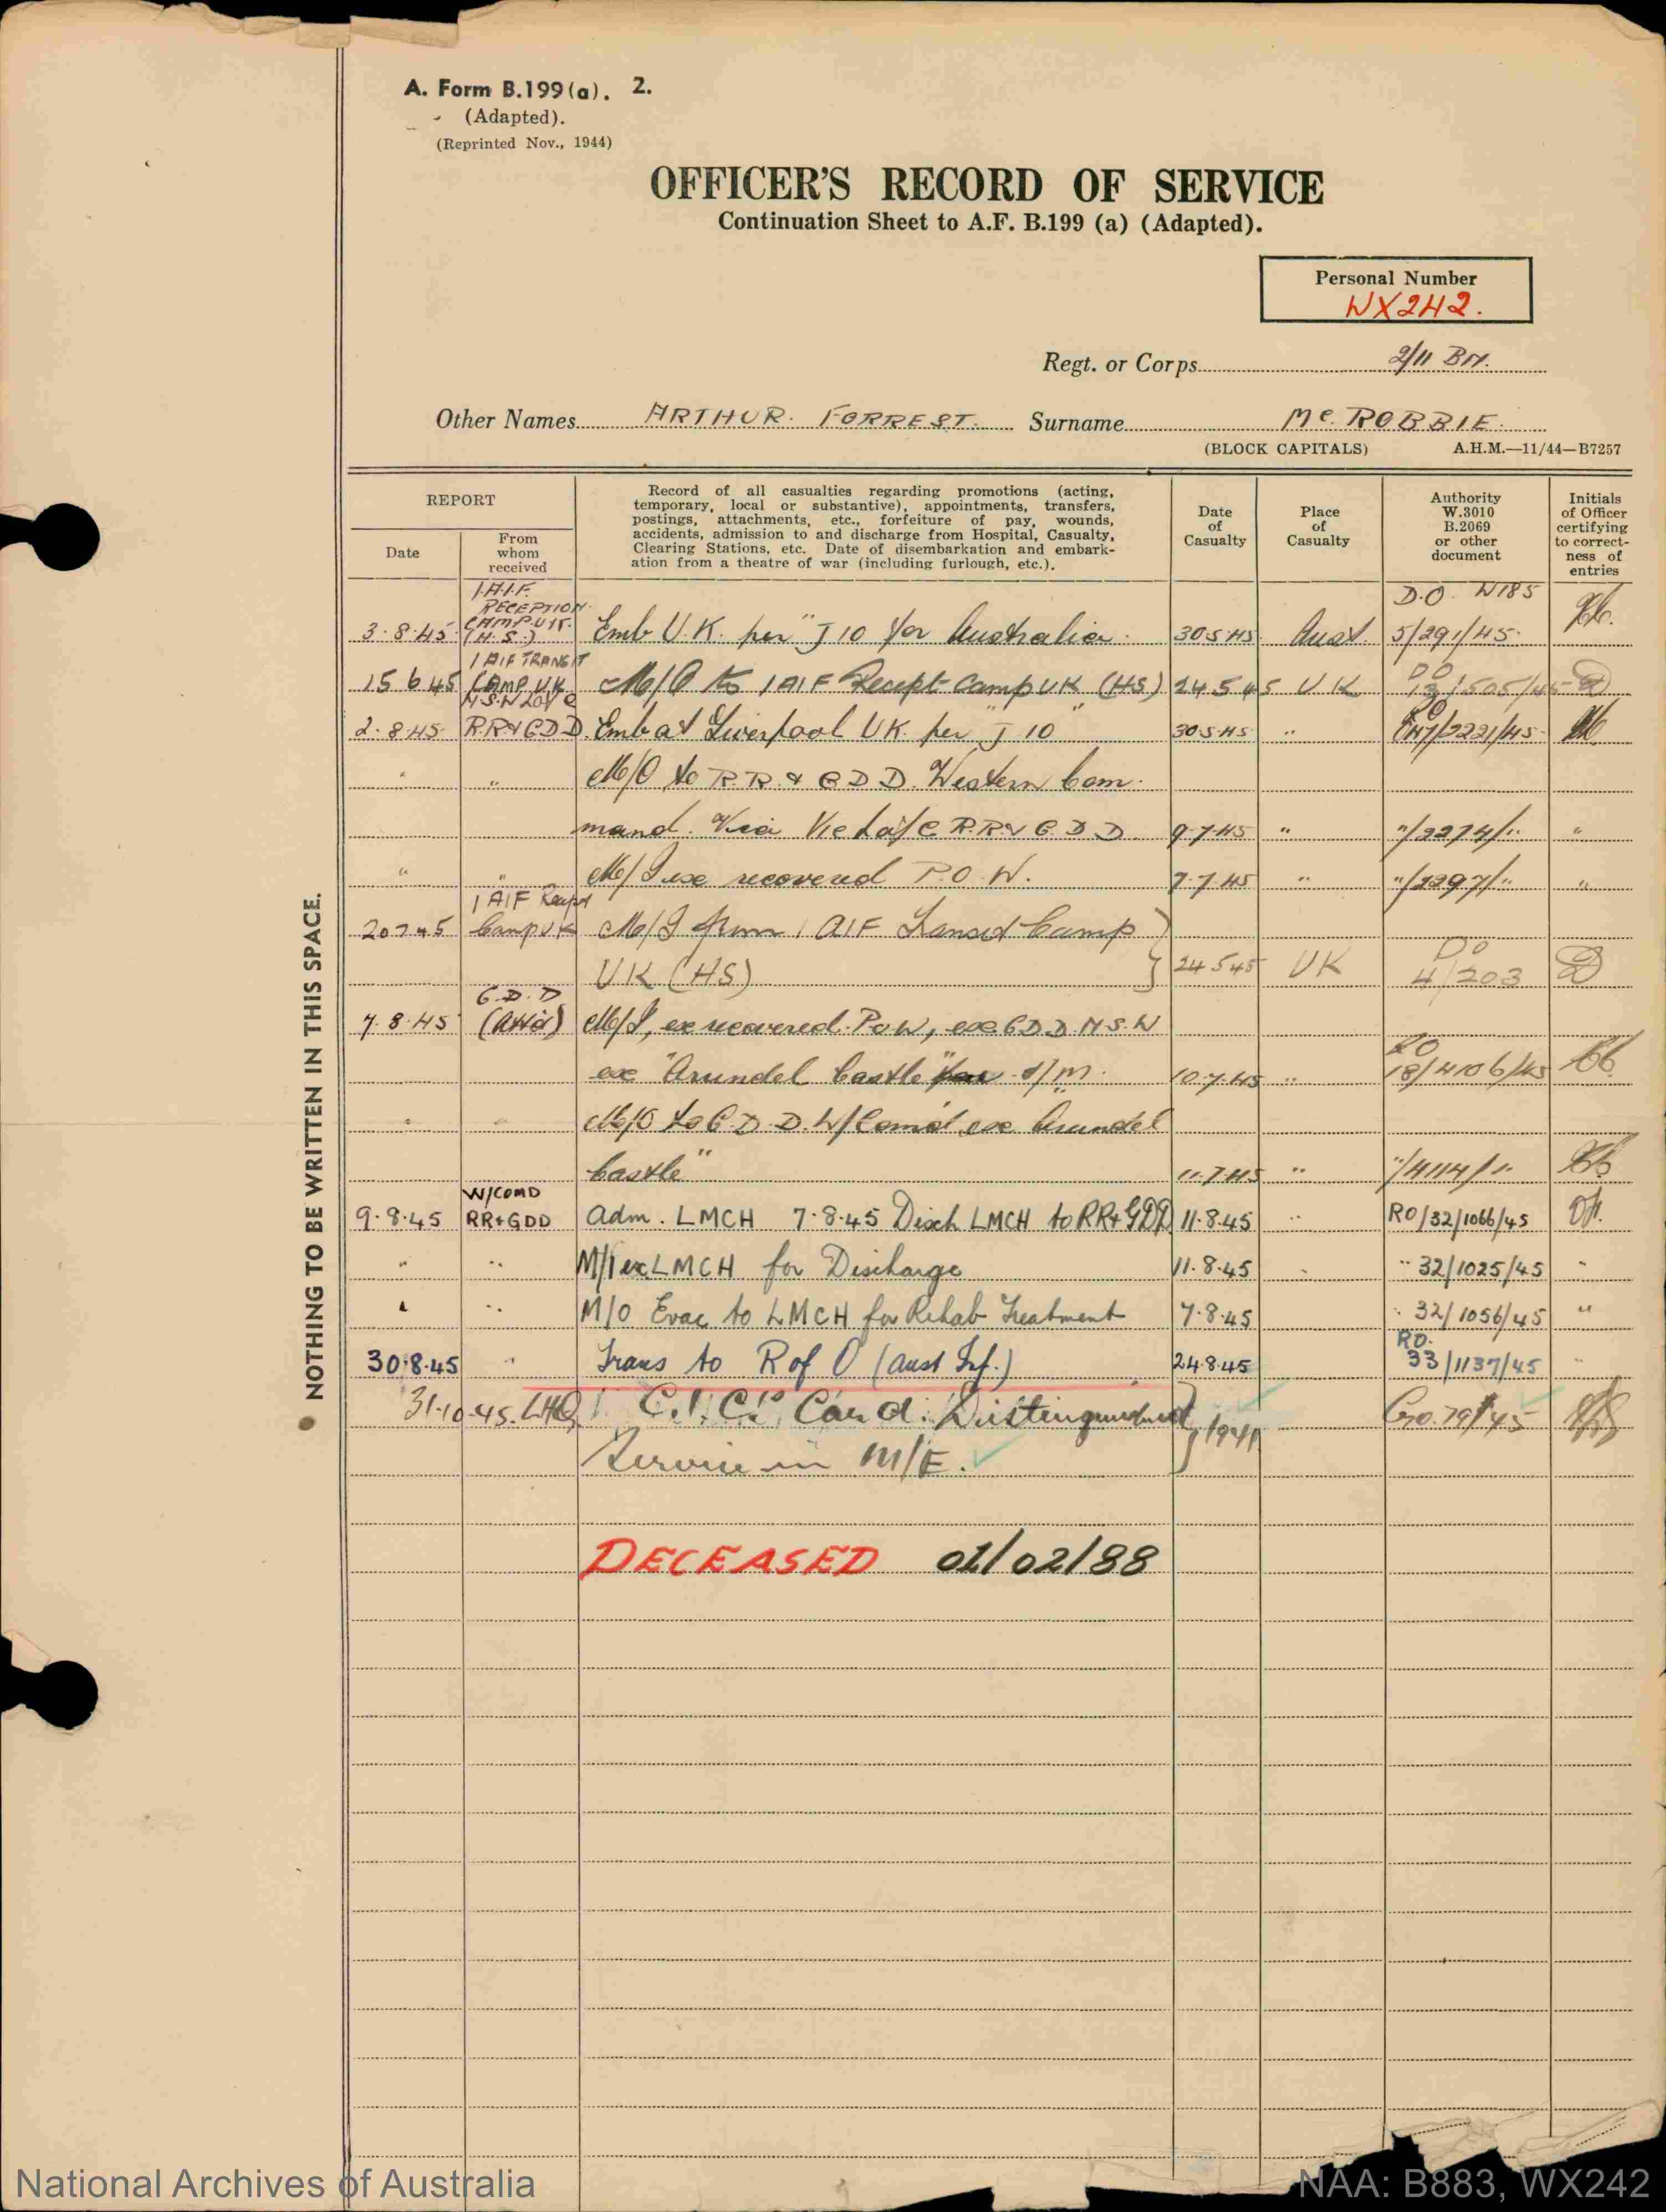 A. Form B.199(a). 2.
(Adapted).
(Reprinted Nov., 1944)
OFFICER'S RECORD OF SERVICE
Continuation Sheet to A.F. B.199 (a) (Adapted).
Personal Number
WX242.
Regt. or Corps 2/11 BN.
Other Names ARTHUR. FORREST. Surname Mc. ROBBIE.
(BLOCK CAPITALS) A.H.M.—11/44—B7257
REPORT
Date
From whom received
Record of all casualties regarding promotions (acting,
temporary, local or substantive), appointments, transfers,
postings, attachments, etc., forfeiture of pay, wounds,
accidents, admission to and discharge from Hospital, Casualty,
Clearing Stations, etc. Date of disembarkation and embark-
ation from a theatre of war (including furlough, etc.).
Date of Casualty
Place of Casualty
Authority W.3010 B.2069 or other document
Initials of Officer certifying to correct- ness of entries
1.A.I.F. D.O. W185
RECEPTION
3.8.45 CAMP U.K. (H.S.) Emb U.K. per "J 10 for Australia. 30.5.45 Aust. 5/291/45.
1 AIF TRANSIT
15 6 45 CAMP UK M/O to 1 AIF Recept Camp UK (HS) 24 5 45 UK DO 13/505/45
N.S.W L of C
2.8.45 RR&GDD. Emb at Liverpool UK. per "J 10" 30.5.45 "
" " M/O to R.R. & G D D. Western Com-
mand. Via Vic L of C R.R & G. D D 9.7.45 " "/2274/" "
" " M/I ex recovered P.O.W. 7.7.45 " "/2297/" "
1 AIF Recept
20 7 45 Camp UK M/I from 1 AIF Transit Camp
UK (HS) 24 5 45 UK DO 4/203
G.D.D
7.8.45 (Att'd) M/I, ex recovered P.o.W, ex G D.D. N.S.W
ex "Arundel Castle" 10.7.45 " RO 18/4106/45
" " M/O to G.D.D. W/Comd ex Arundel
Castle" 11.7.45 " "/4114/"
W/COMD
9.8.45 RR+GDD Adm. LMCH 7.8.45 Disch LMCH to RR+GDD 11.8.45 " RO/32/1066/45
" " M/I ex LMCH for Discharge 11.8.45 " " 32/1025/45 "
" " M/O Evac to LMCH for Rehab Treatment 7.8.45 " 32/1056/45 "
30.8.45 " Trans to R of O (Aust Inf.) 24.8.45 RO. 33/1137/45 "
31.10.45. LHQ C.I.C's Card: Distinguished 1941 G.O. 79/45
Service in M/E.
DECEASED 01/02/88
● NOTHING TO BE WRITTEN IN THIS SPACE.
National Archives of Australia
NAA: B883, WX242